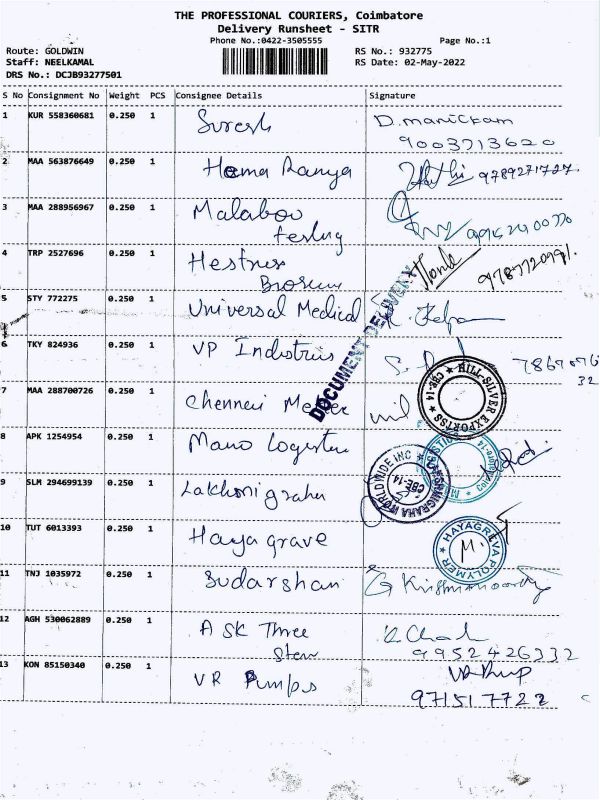 THE PROFESSIONAL COURIERS, Coimbatore
Delivery Runsheet - SITR
Phone No.:0422-3505555 Page No.:1
Route: GOLDWIN RS No.: 932775
Staff: NEELKAMAL RS Date: 02-May-2022
DRS No.: DCJB93277501
S No Consignment No Weight PCS Consignee Details Signature
1 KUR 558360681 0.250 1 Suresh D. manickam
9003713620
2 MAA 563876649 0.250 1 Hema Ranya 9789271727.
3 MAA 288956967 0.250 1 Malabou
4 TRP 2527696 0.250 1
DOCUMENT DELIVERY
5 STY 772275 0.250 1 Universal Medical
6 TKY 824936 0.250 1 VP Industris
32
7 MAA 288700726 0.250 1 Chennai
HILL-SILVER EXPORTSS CBE-14
8 APK 1254954 0.250 1 Mano
9 SLM 294699139 0.250 1 Lakhmi graha
WORLDWIDE INC CBE-14
10 TUT 6013393 0.250 1 Haya grave
HAYAGREVA POLYMER
M.
11 TNJ 1035972 0.250 1 Sudarshan G Krishnamoorthy
12 AGH 530062889 0.250 1 A SK Three
9952426332
13 KON 85150340 0.250 1 VR Pumps
971517722